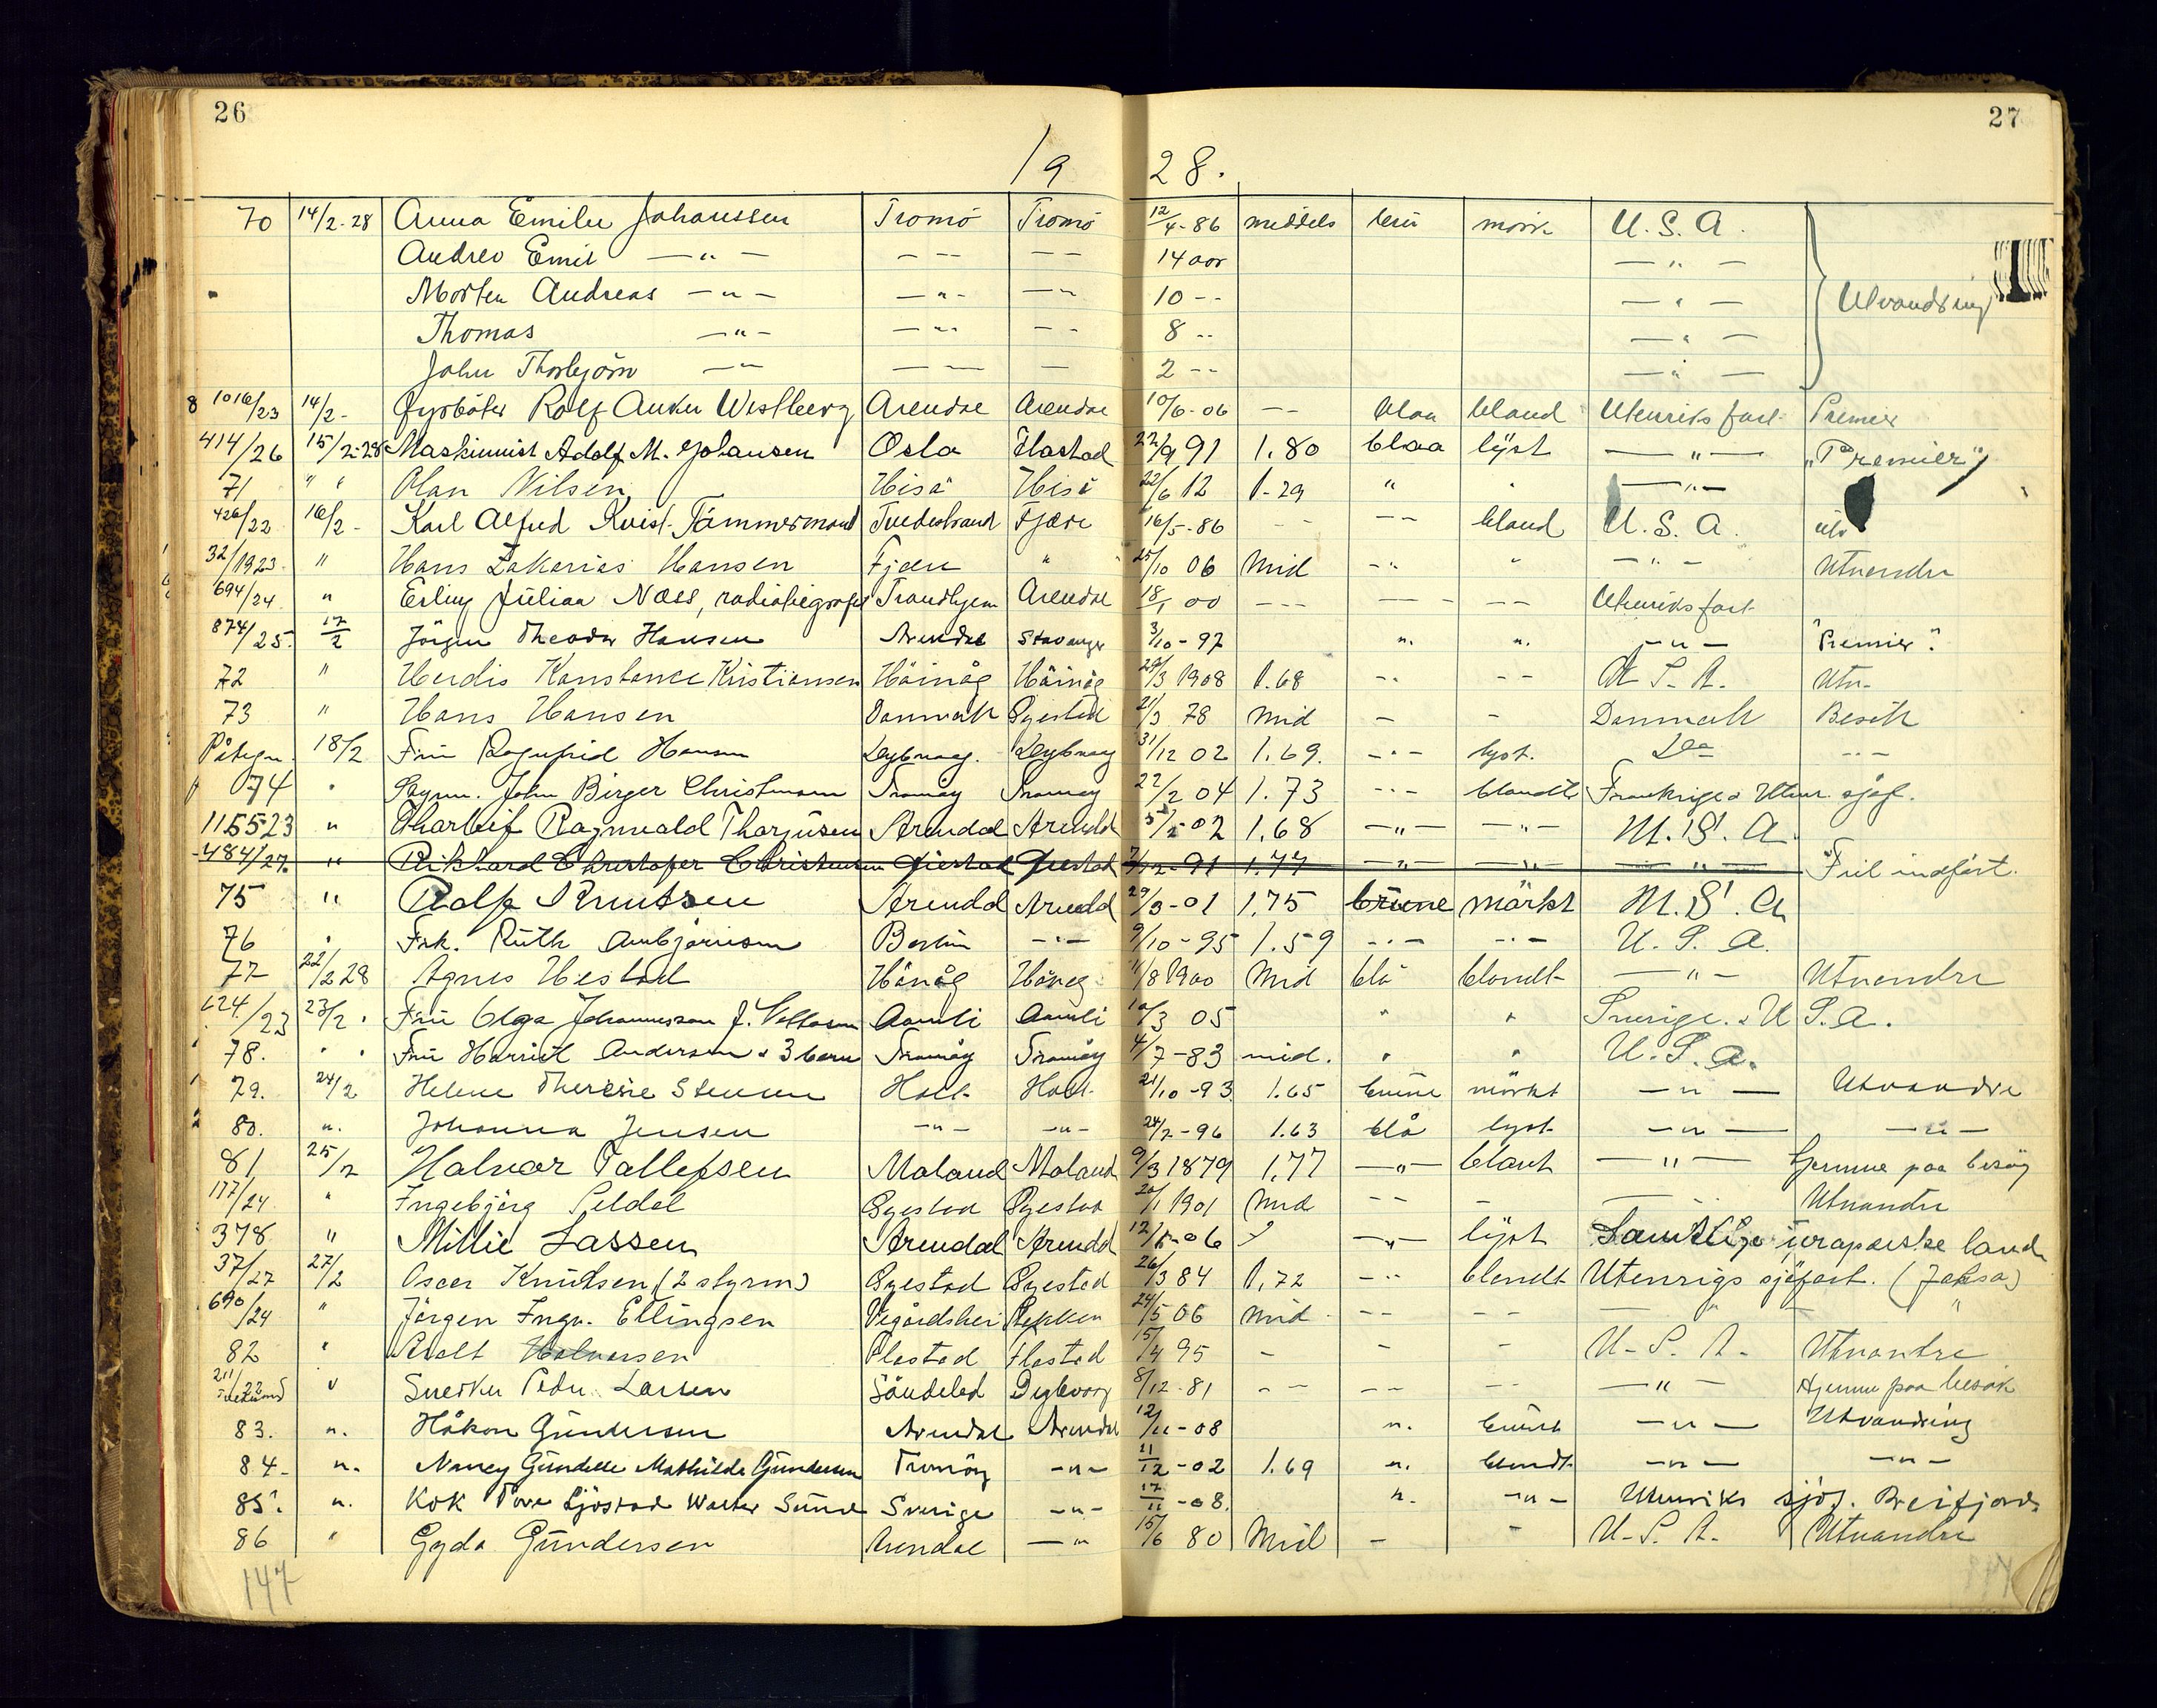 26
27
19 28.
70 14/2-28 Anna Emilie Johanssen Tromö Tromö 12/4-86 middels brun mörk U.S.A.
Andrev Emil —"— —— —— 14 aar —"—
Morten Andreas —"— —"— —"— 10 -- —"— Utvandring
Thomas —"— —"— —— 8 -- —"—
John Thorbjörn —"— —— — 2 -- —"—
8 1016/23 14/2- Fyrböter Rolf Westberg Arendal Arendal 10/6-06 —— blaa bland Utenriks fart Premier
414/26 15/2-28 Maskinnist Adolf M. Johansen Oslo Flastad 22/9 91 1.80 blaa lyst —"— "Premier"
71 " " Olav Nilsen Hisö Hisö 22/6 12 1-29 " " —"—
426/22 16/2- Karl Alfred Kvist. Tömmermand Tvedestrand Fjære 16/5-86 —— —— bland U.S.A. utv
32/1923. " Hans Zakarias Hansen Fjære " 25/10 06 Mid —"— " —"— Utvandre
694/24 " Erling Julian Næss, radiotelegrafist Trondhjem Arendal 18/1 00 ——— —— —— Utenriks fart
874/25. 17/2 Jörgen Theodor Hansen Arendal Stavanger 3/10-97 ". ". —"— "Premier".
72 " Herdis Konstance Kristiansen Håinåg Håinåg 29/3 1908 1.68 —— —— U.S.A. Utv.
73 " Hans Hansen Danmark Öyestad 21/3 78 Mid — — Danmark Besök
Påtegn. 18/2 Fru Ragnfrid Hansen Deybvaag. Deybvaag 31/12 02 1.69. —"— lyst. Do —"—
74 " Styrm. John Birger Christensen Tromöy Tromöy 22/2 04 1.73 —"— blondt Frankrige & Uten. sjöf.
1155 23 " Thorleif Ragnvald Thorjusen Arendal Arendal 5/2-02 1.68 —"— —"— U.S.A.
484/27. " Rikhard Christofer Christensen Öiestad Öiestad 7/12-91 1.77 —"— —"— —"— Feil indfört.
75 " Rolf Knutsen Arendal Arendal 29/3-01 1.75 brune mörkt U.S.A.
76 " Frk. Ruth Berlin —"— 9/10-95 1.59 —"— —"— U.S.A.
77 22/2 28 Agnes Hestad Hånåg Håneg 11/8 1900 Mid blå blondt —"— Utvandre
624/23 23/2. Fru Olga Johannessen f. Aamli Aamli 10/3 05 " " Sverige. & U.S.A.
78. " " Fru Harriet Andersen & 3 barn Tromöy Tromöy 4/7-83 mid. " " U.S.A.
79. 24/2 Helene Therese Stensen Holt Holt 21/10-93 1.65 brune mörkt —"— Utvandre
80. ". Johanna Jensen —"— —"— 24/2-96 1.63 blå lyst —"— —"—
81 25/2 Halvor Tallefsen Moland Moland 9/3 1879 1,77 —"— blont —"— hjemme paa besög
177/24 " Ingebjörg Seldal Öyestad Öyestad 20/1 1901 Mid —— — —— Utvandre
378 " Millie Lassen Arendal Arendal 12/5-06 " —"— lyst Samtlige europæiske land
37/27 27/2 Oscar Knutsen (2 styrm) Öyestad Öyestad 26/3 84 1,72 —"— blondt Utenrigs sjöfart. (Jaksa)
690/24 " Jörgen Ingv. Ellingsen Vegårdshei 24/5 06 mid —— —— — " — "
82 " Aralt Halvorsen Flastad Flastad 15/4 95 — — — U.S.A. Utvandre
211/22 Tvedestrand " Sverken Peder Larsen Söndeled Dypvaag 8/12-81 —— —— —— —"— Hjemme paa besök
83. ". Håkon Gundersen Arendal Arendal 12/11-08 ". brunt —"— Utvandring
84- ". Nancy Gundelle Mathilde Gundersen Tromöy —"— 11/12-02 1.69 ". blondt —"— —"—
85. ". Kok Tore Sjöstad Walter Sverige —"— 17/11-08. ". —"— Utenriks sjöf. Breifjord
86 " Gyda Gundersen Arendal —"— 15/6 80 Mid — — U.S.A. Utvandre
147